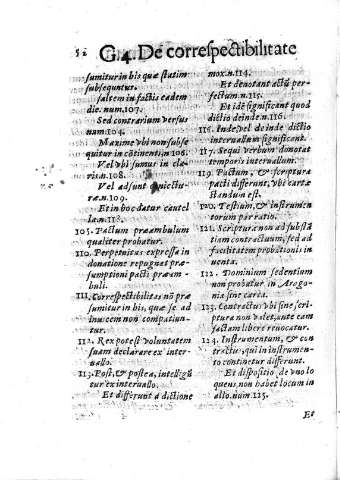 52
G.4. De correspectibilitate
sumitur in his quæ statim
subsequntur.
saltem in factis eadem
die. num. 107.
Sed contrarium versus
num. 104.
Maxime vbi non subse
quitur in cōtinenti n. 106.
Vel vbi sumus in cla-
ris n. 108.
Vel adsunt coniectu-
ræ n. 109.
Et in hoc datur cautel
la n. 118.
105. Pactum præambulum
qualiter probatur.
110. Perpetuitas expressa in
donatione repugnat præ-
sumptioni pacti præam-
buli.
111. Correspectibilitas nō præ
sumitur in his, quæ se ad
inuicem non compatiun-
tur.
112. Rex potest voluntatem
suam declarare ex inter-
uallo.
113. Post, & postea, intelligū
tur ex interuallo.
Et differunt a dictione
mox n. 114.
Et denotant actū per-
fectum n. 115.
Et idē significant quod
dictio deinde n. 116.
116. Inde, vel deinde dictio
interuallum significant.
117. Sequi verbum denotat
temporis interuallum.
119. Pactum, & scriptura
pacti differunt, vbi cartæ
standum est.
120. Testium, & instrumen-
torum par ratio.
121. Scriptura non ad substā
tiam contractuum, sed ad
facilitatem probationis in
uenta.
122. Dominium sedentium
non probatur in Arago-
nia sine carta.
123. Contractus vbi sine scri-
ptura non valet, ante eam
factam libere reuocatur.
124. Instrumentum, & con-
tractus, qui in instrumen-
to continetur differunt.
Et dispositio de vno lo
quens, non habet locum in
alio. num 125.
Et